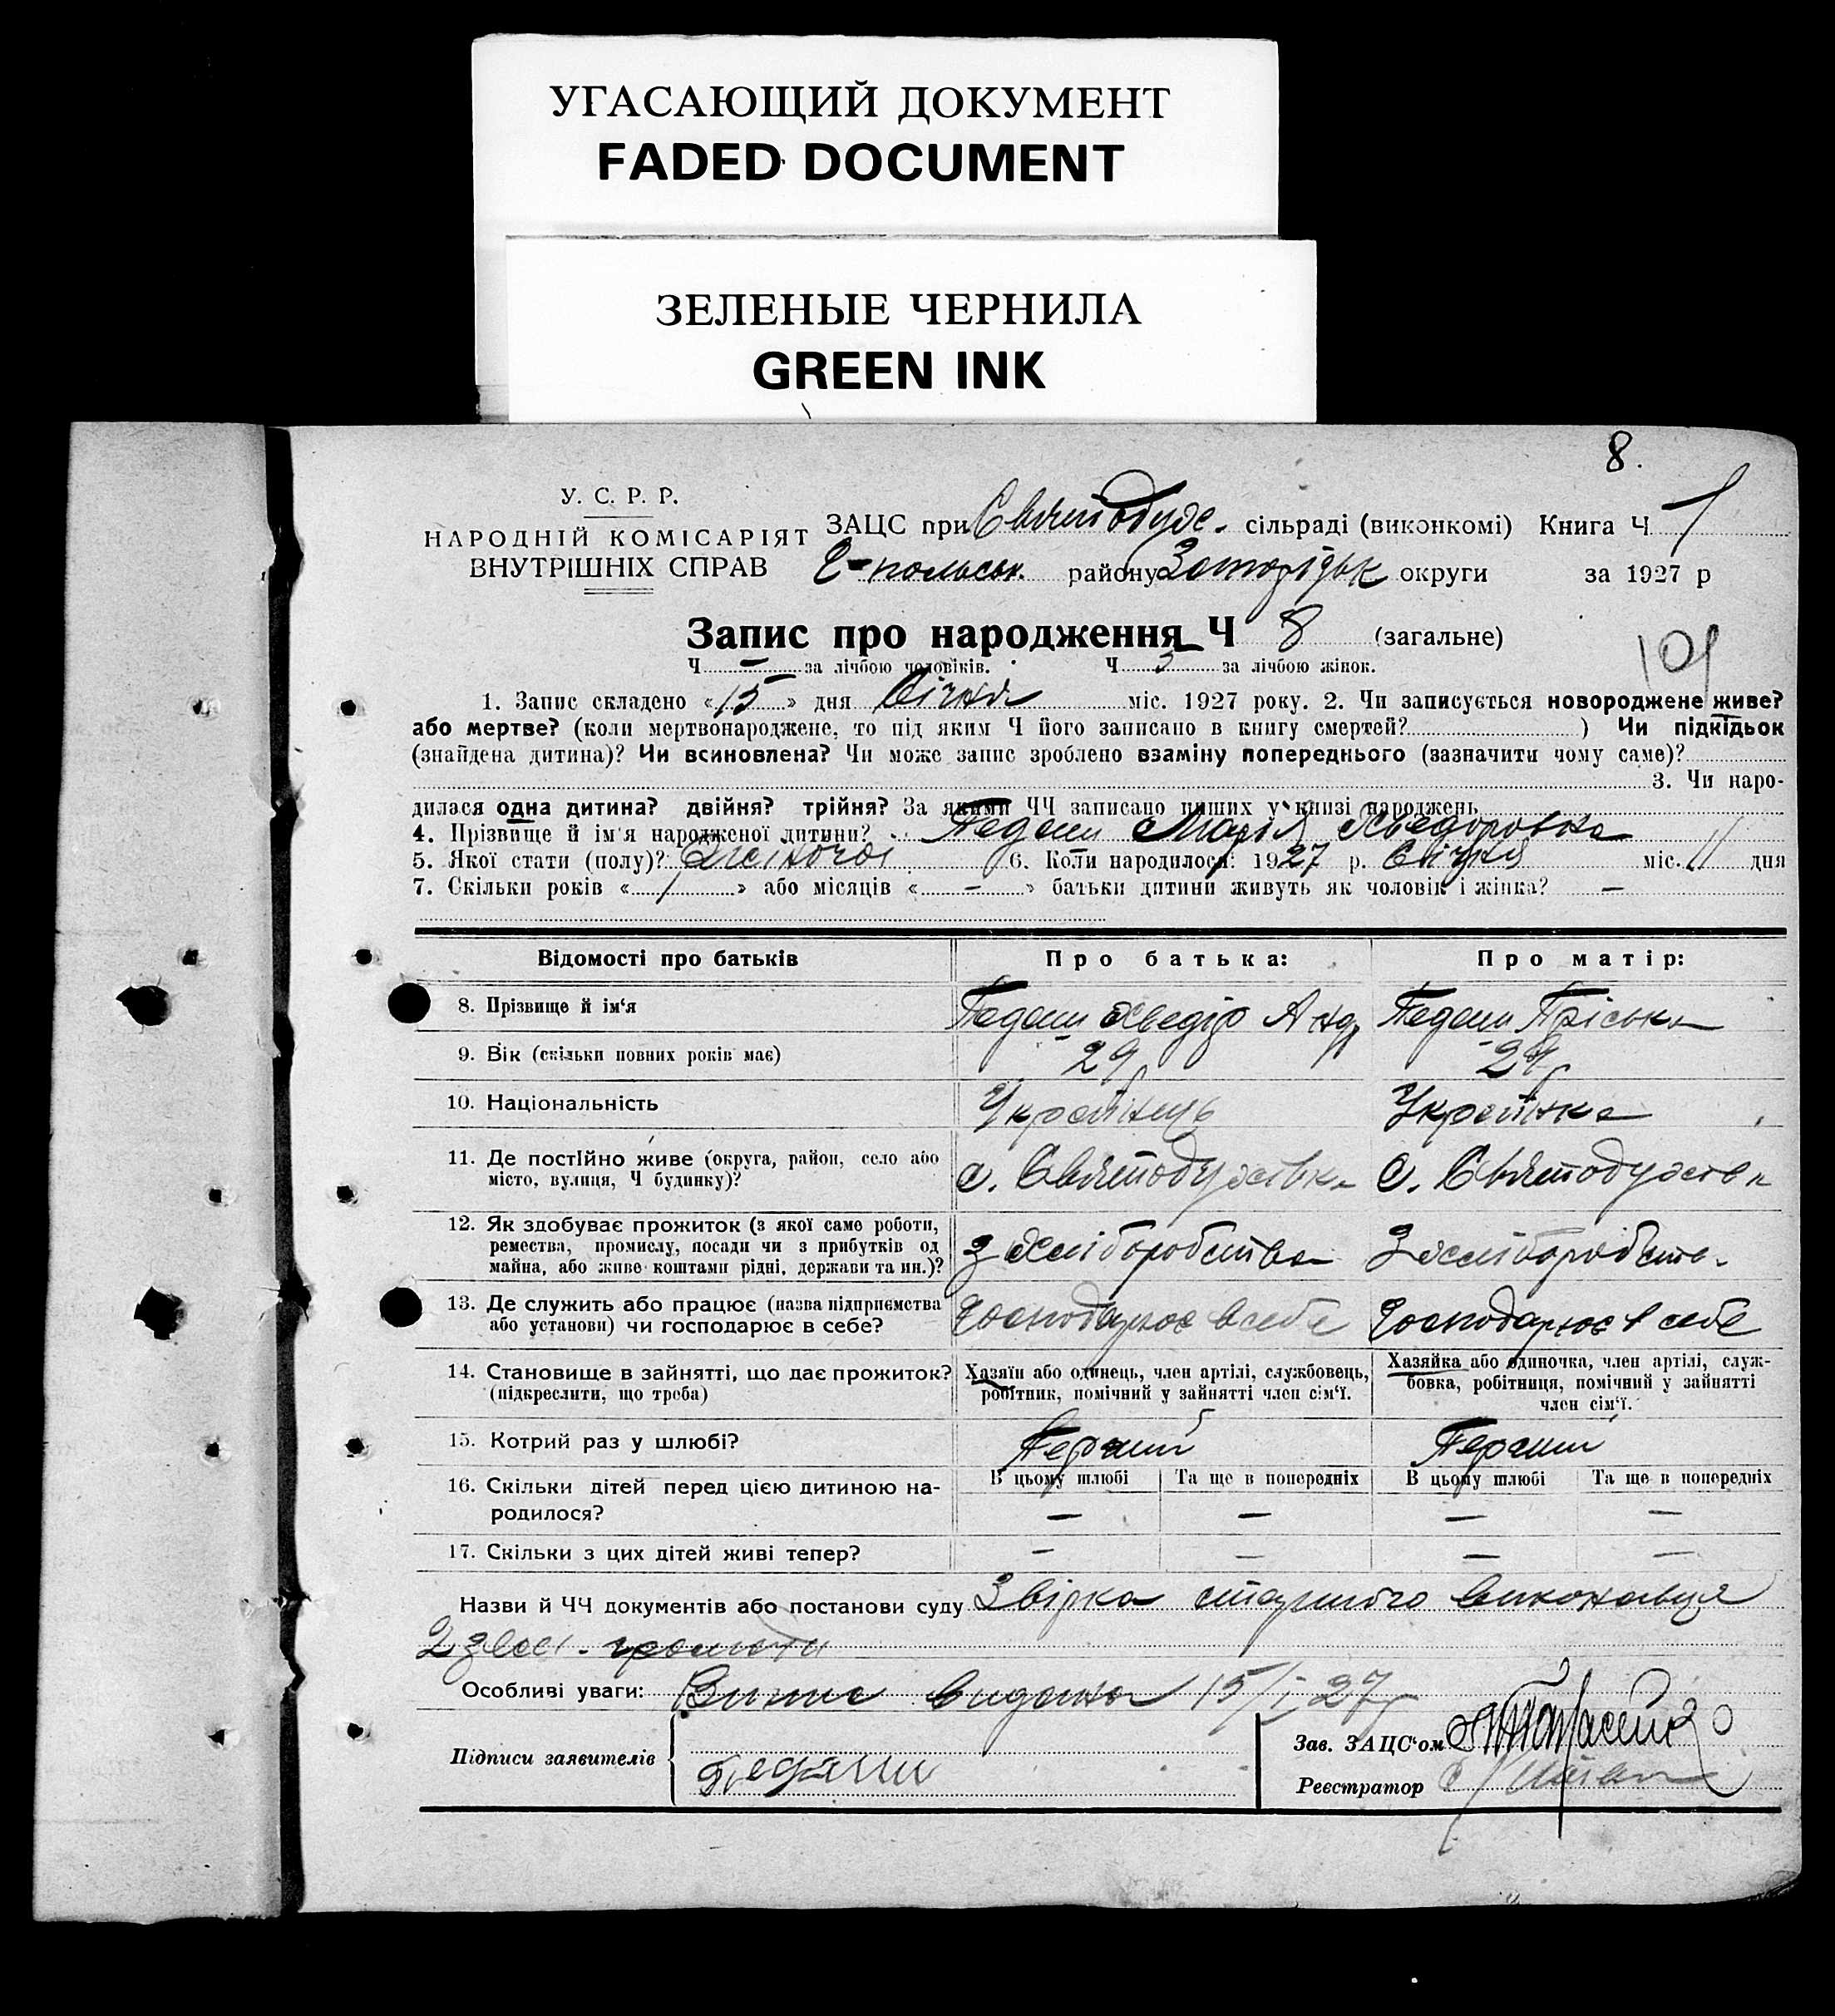 УГАСАЮЩИЙ ДОКУМЕНТ
FADED DOCUMENT
ЗЕЛЕНЫЕ ЧЕРНИЛА
GREEN INK
8.
У. С. Р. Р.
НАРОДНІЙ КОМІСАРІЯТ
ВНУТРІШНІХ СПРАВ
ЗАЦС при Святодух. сільраді (виконкомі) Книга Ч 1
польськ. району Запорізьк округи за 1927 р
Запис про народження Ч 8 (загальне)
Ч – за лічбою чоловіків. Ч 5 за лічбою жінок.
1. Запис складено «15» дня Січня міс. 1927 року. 2. Чи записується новороджене живе?
або мертве? (коли мертвонароджене, то під яким Ч його записано в книгу смертей? ) Чи підкідьок
(знайдена дитина)? Чи всиновлена? Чи може запис зроблено взаміну попереднього (зазначити чому саме)?
3. Чи наро-
дилася одна дитина? двійня? трійня? За якими ЧЧ записано инших у книзі народжень
4. Прізвище й ім'я народженої дитини? Педаш Марія Хведоровна
5. Якої стати (полу)? Жіночої 6. Коли народилося: 1927 р. Січня міс. 11 дня
7. Скільки років « / » або місяців « – » батьки дитини живуть як чоловік і жінка? –
Відомості про батьків Про батька: Про матір:
8. Прізвище й ім‘я Педаш Хведір Андр Педаш Пріська
9. Вік (скільки повних років має) 29 29
10. Національність Українець Українка
11. Де постІйно живе (округа, район, село або
місто, вулиця, Ч будинку)? с. Святодухівка с. Святодухівк
12. Як здобуває прожиток (з якої саме роботи,
ремества, промислу, посади чи з прибутків од
майна, або живе коштами рідні, держави та ин.)? З хліборобства З хліборобств.
13. Де служить або працює (назва підприємства
або установи) чи господарює в себе? Господарює в себе Господарює в себе
14. Становище в зайнятті, що дає прожиток?
(підкреслити, що треба)
Хазяїн або одинець, член артілі, службовець,
робітник, помічний у зайнятті член сім‘ї.
Хазяйка або одиночка, член артілі, служ-
бовка, робітниця, помічний у зайнятті
член сім‘ї.
15. Котрий раз у шлюбі? Перший Перший
В цьому шлюбі Та ще в попередніх В цьому шлюбі Та ще в попередніх
16. Скільки дітей перед цією дитиною на-
родилося? – – – –
17. Скільки з цих дітей живі тепер? – – – –
Назви й ЧЧ документів або постанови суду Звірка старшого виконавця
2 зем. громади
Особливі уваги: Випис видано 15/I 27р
Підписи заявителів Педаш
Зав. ЗАЦС‘ом
Реєстратор